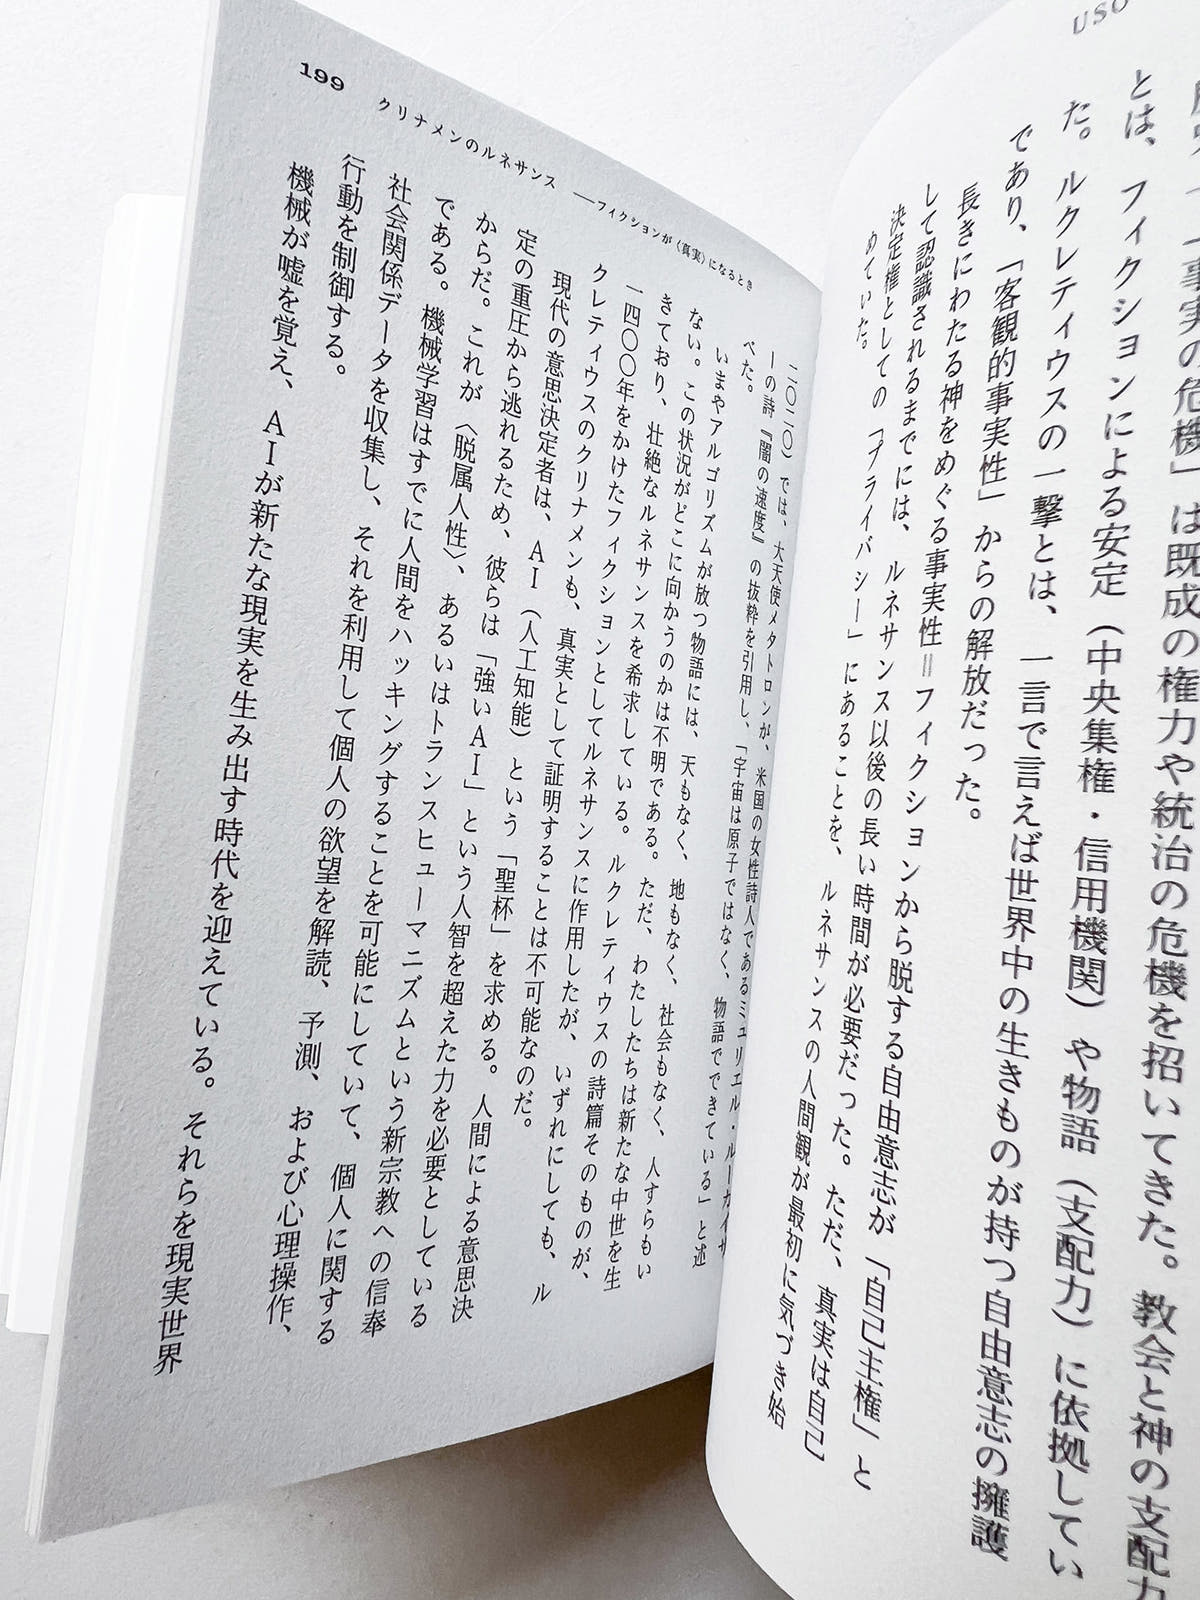 USO
「事実の危機」は既成の権力や統治の危機を招いてきた。教会と神の支配力
とは、フィクションによる安定（中央集権・信用機関）や物語（支配力）に依拠してい
た。ルクレティウスの一撃とは、一言で言えば世界中の生きものが持つ自由意志の擁護
であり、「客観的事実性」からの解放だった。
長きにわたる神をめぐる事実性＝フィクションから脱する自由意志が「自己主権」と
して認識されるまでには、ルネサンス以後の長い時間が必要だった。ただ、真実は自己
決定権としての「プライバシー」にあることを、ルネサンスの人間観が最初に気づき始
めていた。
199
クリナメンのルネサンス ――フィクションが〈真実〉になるとき
二〇二〇）では、大天使メタトロンが、米国の女性詩人であるミュリエル・ルーカイザ
ーの詩『闇の速度』の抜粋を引用し、「宇宙は原子ではなく、物語でできている」と述
べた。
いまやアルゴリズムが放つ物語には、天もなく、地もなく、社会もなく、人すらもい
ない。この状況がどこに向かうのかは不明である。ただ、わたしたちは新たな中世を生
きており、壮絶なルネサンスを希求している。ルクレティウスの詩篇そのものが、
一四〇〇年をかけたフィクションとしてルネサンスに作用したが、いずれにしても、ル
クレティウスのクリナメンも、真実として証明することは不可能なのだ。
現代の意思決定者は、AI（人工知能）という「聖杯」を求める。人間による意思決
定の重圧から逃れるため、彼らは「強いAI」という人智を超えた力を必要としている
からだ。これが〈脱属人性〉、あるいはトランスヒューマニズムという新宗教への信奉
である。機械学習はすでに人間をハッキングすることを可能にしていて、個人に関する
社会関係データを収集し、それを利用して個人の欲望を解読、予測、および心理操作、
行動を制御する。
機械が嘘を覚え、AIが新たな現実を生み出す時代を迎えている。それらを現実世界